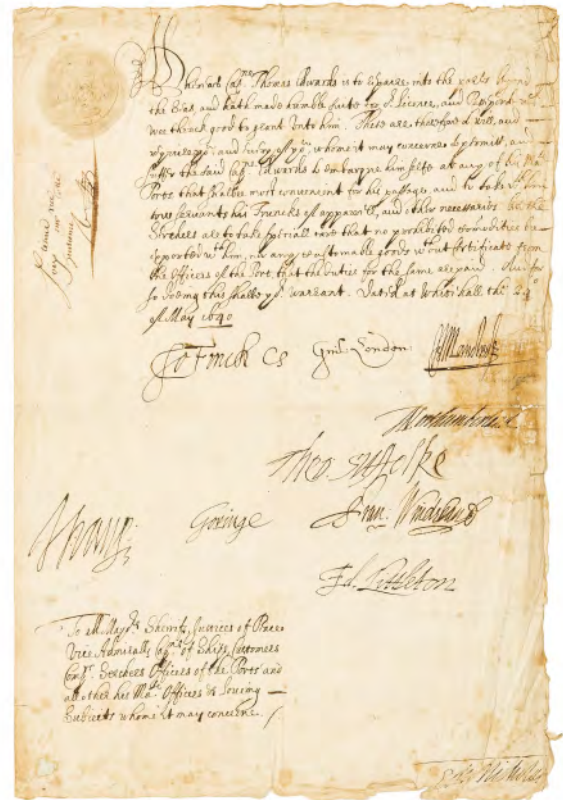 Whereas Cap:ne Thomas Edwards is to repaire into the parts beyond
the Seas, and hath made humble suite for o:r Licence, and Respond
wee thinck good to grant unto him. These are therefore to will, and
require yo:u and every of yo:u whome it may concerne to permitt, and
suffer the said Cap:ne Edwards to embarque himselfe at any of his Ma:ts
Ports that shalbee most convenient for his passage, and to take w:th him
two servants his Truncks of apparell, and other necessaries
Serchers are to take speciall care that no prohibited comodities be
exported w:th him, nor any customable goods w:thout certificate from
the Officers of the Port, that the duties for the same are paid. And for
so doeing this shalbe yo:r warrant. Dated at Whitehall the
of May 1640
Jo Finch CS Guil: London
Theo: Suffolke
Goringe Fran: Windebank
Ed. Littleton
To all Mayo:rs Sherifs, Justices of Peace
Vice Admiralls Cap:ns of Ships, Customers
Comp:rs Serchers Officers of the Ports and
all other his Ma:ts Officers & loving
Subiects whome it may concerne.